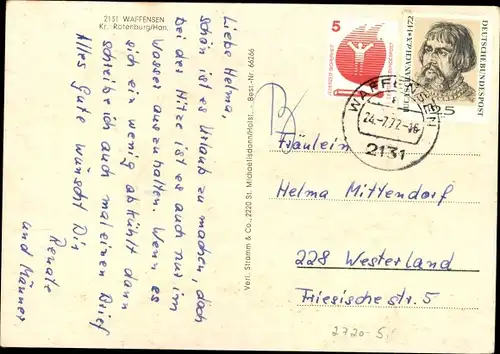 2131 WAFFENSEN
Kr. Rotenburg/Han.
Liebe Helma,
schön ist es Urlaub zu machen, doch
bei der Hitze ist es auch nur im
Wasser auszuhalten. Wenn es
sich ein wenig abkühlt dann
schreibe ich auch mal einen Brief
Alles Gute wünscht Dir
Renate
und Männer
Verl. Stramm & Co., 2220 St. Michaelisdonn/Holst. - Best.-Nr. 66266
5
JEDERZEIT SICHERHEIT
DEUTSCHE BUNDESPOST
DEUTSCHE BUNDESPOST
25
WAFFENSEN
24.-7.72-16
2131
Fräulein
Helma Mittendorf
228 Westerland
Friesische str. 5
2720-5,